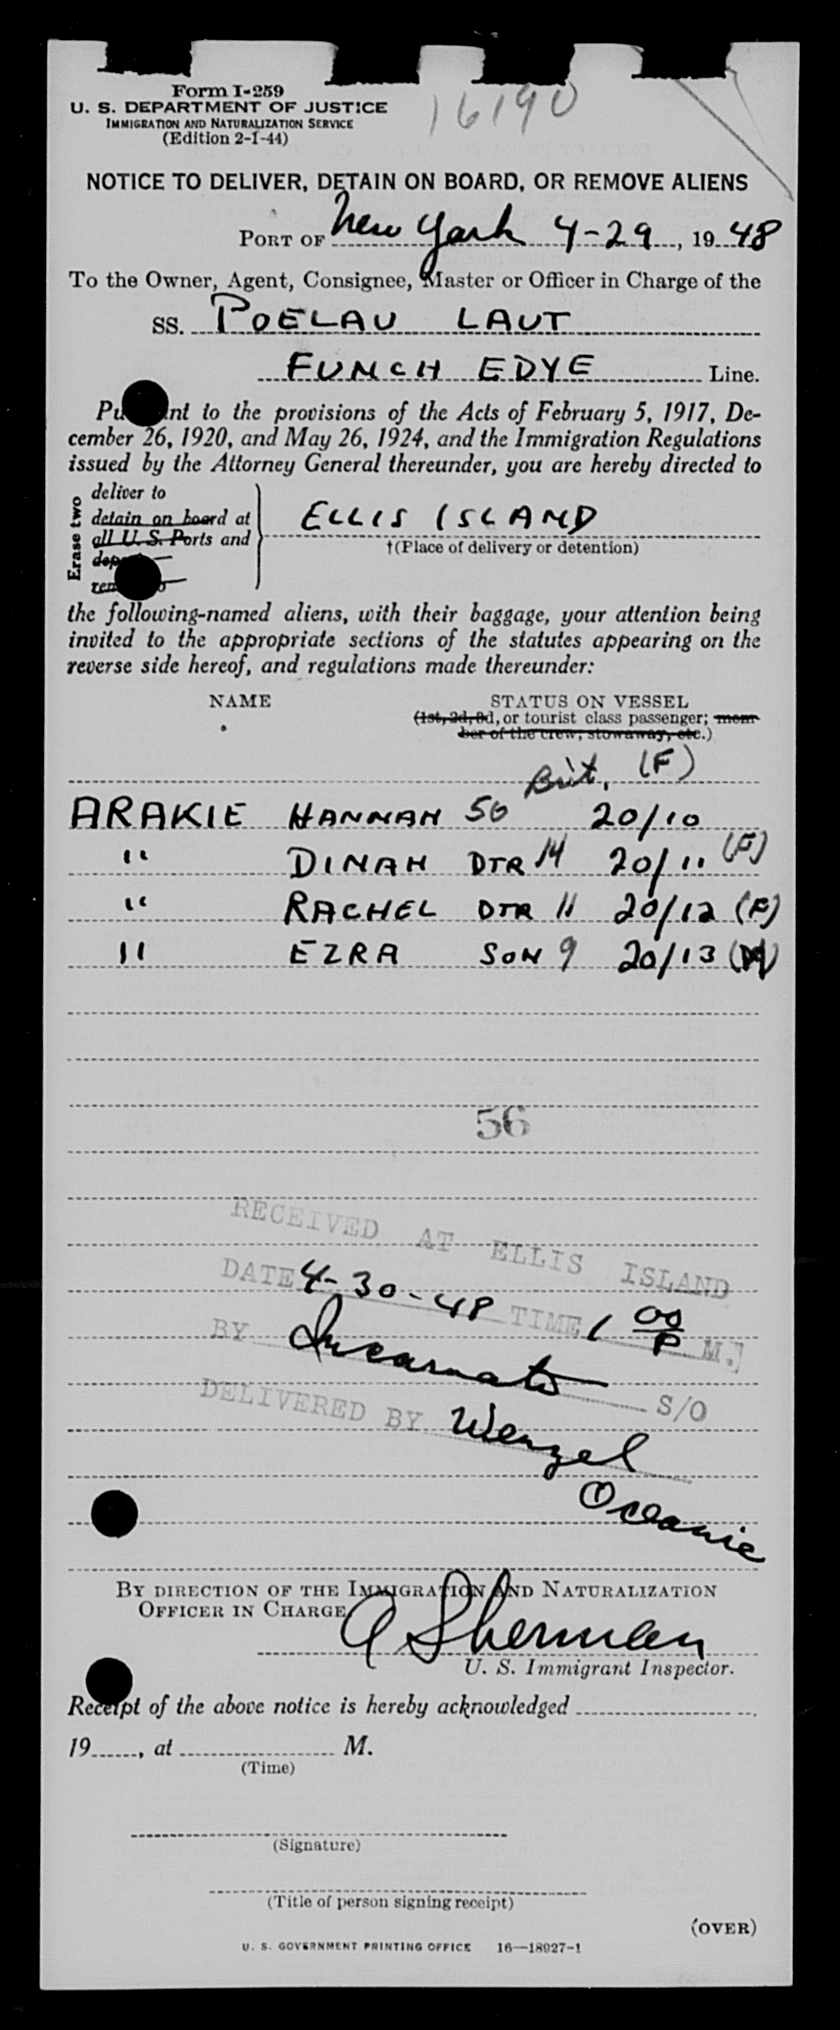 Form I-259
16190
U. S. DEPARTMENT OF JUSTICE
IMMIGRATION AND NATURALIZATION SERVICE
(Edition 2-1-44)
NOTICE TO DELIVER, DETAIN ON BOARD, OR REMOVE ALIENS
PORT OF New York 4-29, 1948
To the Owner, Agent, Consignee, Master or Officer in Charge of the
SS. POELAU LAUT
FUNCH EDYE Line.
nt to the provisions of the Acts of February 5, 1917, De-
cember 26, 1920, and May 26, 1924, and the Immigration Regulations
issued by the Attorney General thereunder, you are hereby directed to
Erase two
deliver to
detain on board at
all U. S. Ports and
ELLIS ISLAND
†(Place of delivery or detention)
the following-named aliens, with their baggage, your attention being
invited to the appropriate sections of the statutes appearing on the
reverse side hereof, and regulations made thereunder:
NAME STATUS ON VESSEL
(1st, 2d, 3d, or tourist class passenger; mem-
ber of the crew, stowaway, etc.)
Brit. (F)
ARAKIE HANNAH 50 20/10
" DINAH DTR 14 20/11 (F)
" RACHEL DTR 11 20/12 (F)
" EZRA SON 9 20/13 (M)
56
RECEIVED AT ELLIS ISLAND
DATE 4-30-48 TIME 1 00 P M.
BY Incarnato S/O
DELIVERED BY Wenzel
Oceanic
BY DIRECTION OF THE IMMIGRATION AND NATURALIZATION
OFFICER IN CHARGE
A Sherman
U. S. Immigrant Inspector.
Receipt of the above notice is hereby acknowledged
19 , at M.
(Time)
(Signature)
(Title of person signing receipt)
(OVER)
U. S. GOVERNMENT PRINTING OFFICE 16—18027-1